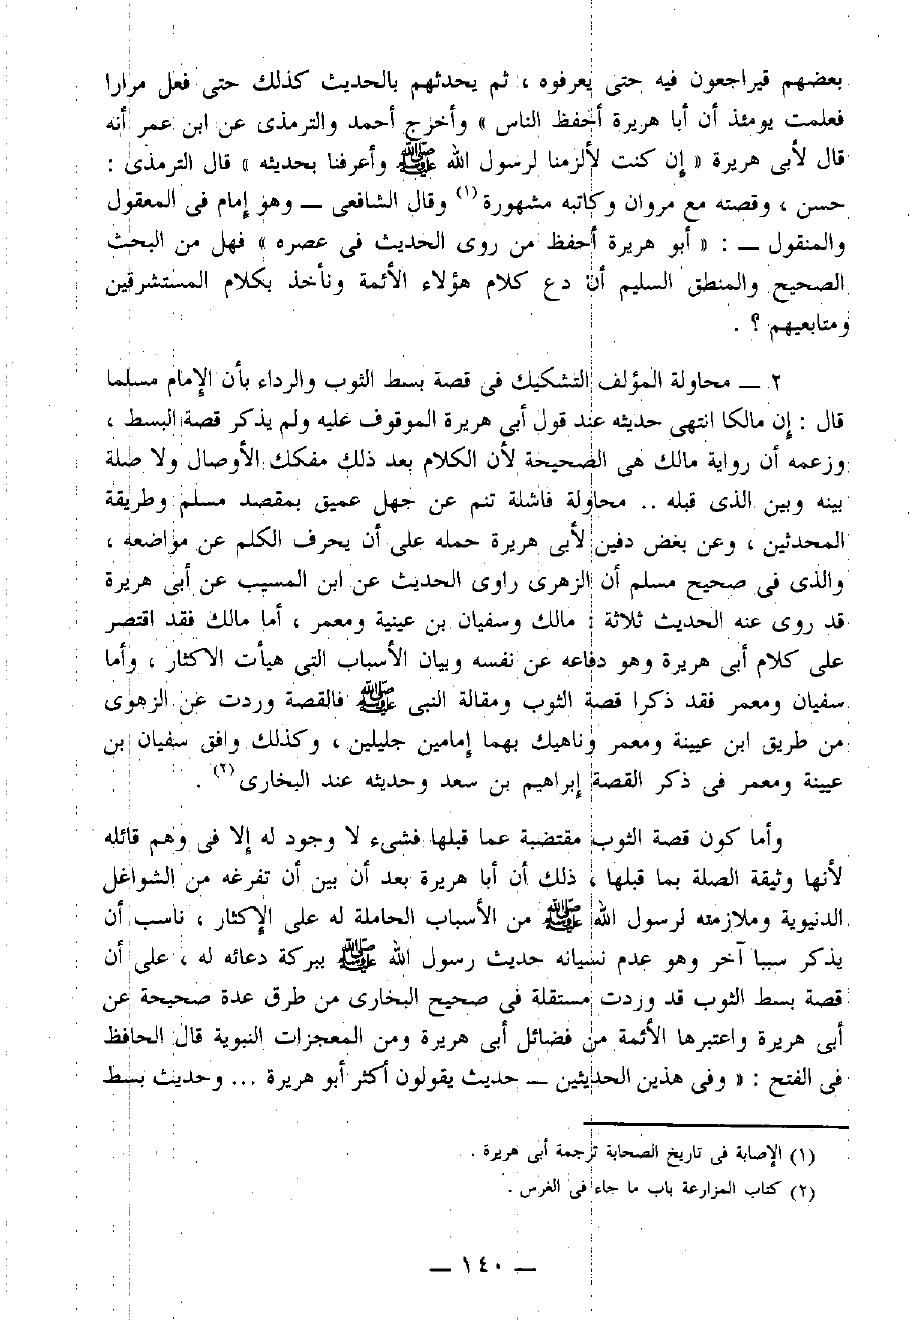 بعضهم فيراجعون فيه حتى يعرفوه ، ثم يحدثهم بالحديث كذلك حتى فعل مرارا
فعلمت يومئذ أن أبا هريرة أحفظ الناس » وأخرج أحمد والترمذى عن ابن عمر أنه
قال لأبى هريرة « إن كنت لألزمنا لرسول الله ﷺ وأعرفنا بحديثه » قال الترمذى :
حسن ، وقصته مع مروان وكاتبه مشهورة (١) وقال الشافعى — وهو إمام فى المعقول
والمنقول — : « أبو هريرة أحفظ من روى الحديث فى عصره » فهل من البحث
الصحيح والمنطق السليم أن دع كلام هؤلاء الأئمة ونأخذ بكلام المستشرقين
ومتابعيهم ؟ .
٢ — محاولة المؤلف التشكيك فى قصة بسط الثوب والرداء بأن الإمام مسلما
قال : إن مالكا انتهى حديثه عند قول أبى هريرة الموقوف عليه ولم يذكر قصة البسط ،
وزعمه أن رواية مالك هى الصحيحة لأن الكلام بعد ذلك مفكك الأوصال ولا صلة
بينه وبين الذى قبله .. محاولة فاشلة تنم عن جهل عميق بمقصد مسلم وطريقة
المحدثين ، وعن بغض دفين لأبى هريرة حمله على أن يحرف الكلم عن مواضعه ،
والذى فى صحيح مسلم أن الزهرى راوى الحديث عن ابن المسيب عن أبى هريرة
قد روى عنه الحديث ثلاثة : مالك وسفيان بن عينية ومعمر ، أما مالك فقد اقتصر
على كلام أبى هريرة وهو دفاعه عن نفسه وبيان الأسباب التى هيأت الاكثار ، وأما
سفيان ومعمر فقد ذكرا قصة الثوب ومقالة النبى ﷺ فالقصة وردت عن الزهوى
من طريق ابن عيينة ومعمر وناهيك بهما إمامين جليلين ، وكذلك وافق سفيان بن
عيينة ومعمر فى ذكر القصة إبراهيم بن سعد وحديثه عند البخارى (٢) .
وأما كون قصة الثوب مقتضبة عما قبلها فشىء لا وجود له إلا فى وهم قائله
لأنها وثيقة الصلة بما قبلها ، ذلك أن أبا هريرة بعد أن بين أن تفرغه من الشواغل
الدنيوية وملازمته لرسول الله ﷺ من الأسباب الحاملة له على الإكثار ، ناسب أن
يذكر سببا آخر وهو عدم نسيانه حديث رسول الله ﷺ ببركة دعائه له ، على أن
قصة بسط الثوب قد وردت مستقلة فى صحيح البخارى من طرق عدة صحيحة عن
أبى هريرة واعتبرها الأئمة من فضائل أبى هريرة ومن المعجزات النبوية قال الحافظ
فى الفتح : « وفى هذين الحديثين — حديث يقولون أكثر أبو هريرة ... وحديث بسط
(١) الإصابة فى تاريخ الصحابة ترجمة أبى هريرة .
(٢) كتاب المزارعة باب ما جاء فى الغرس .
— ١٤٠ —